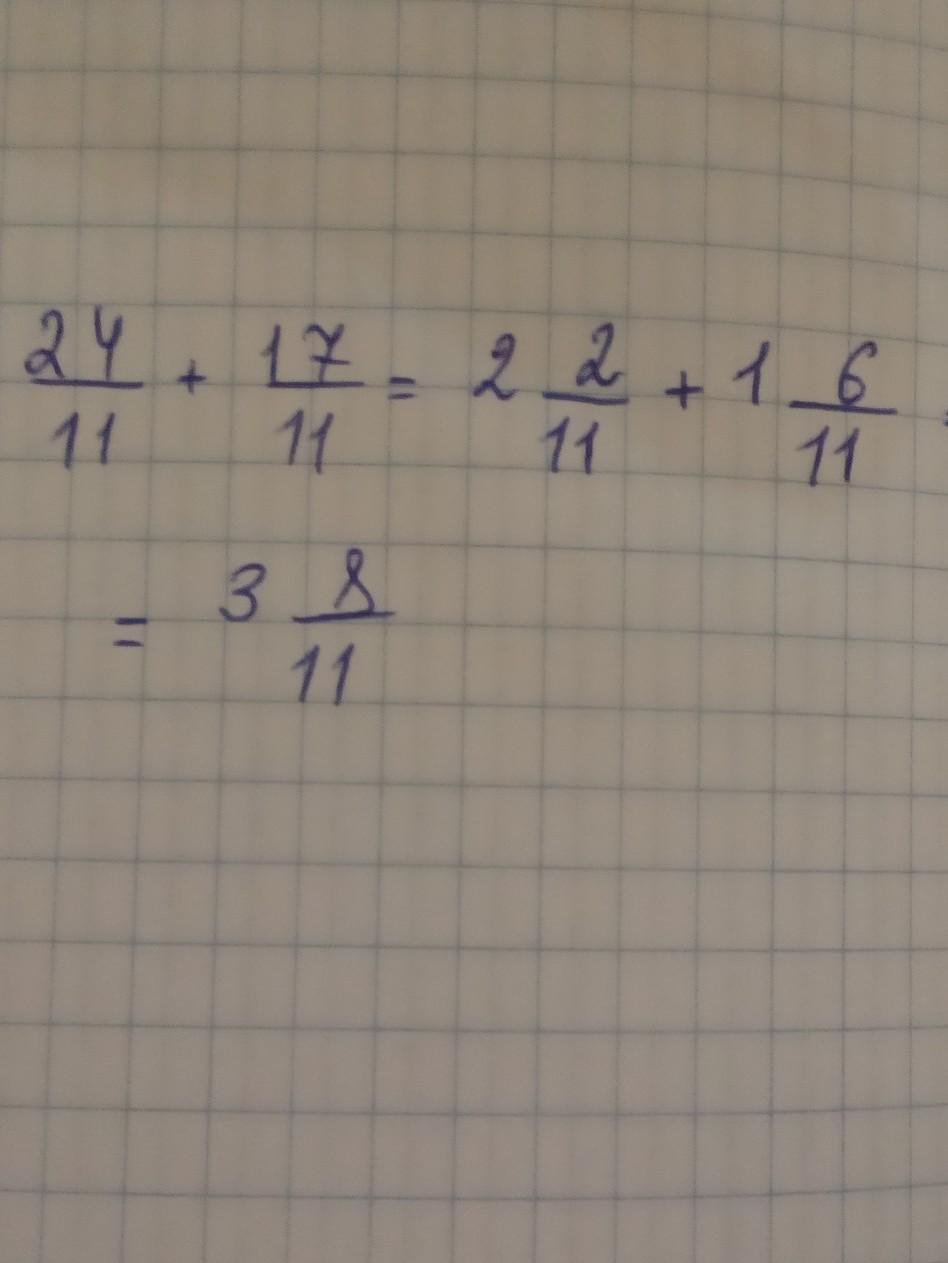 24/11 + 17/11 = 2 2/11 + 1 6/11 =
= 3 8/11